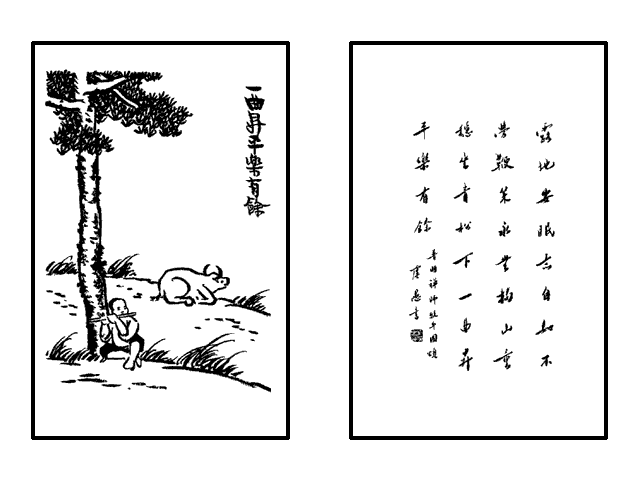 一曲昇平樂有餘
露地安眠意自如不
勞鞭策永無拘山童
穩坐青松下一曲昇
平樂有餘
普明禪師牧牛圖頌
虞愚書